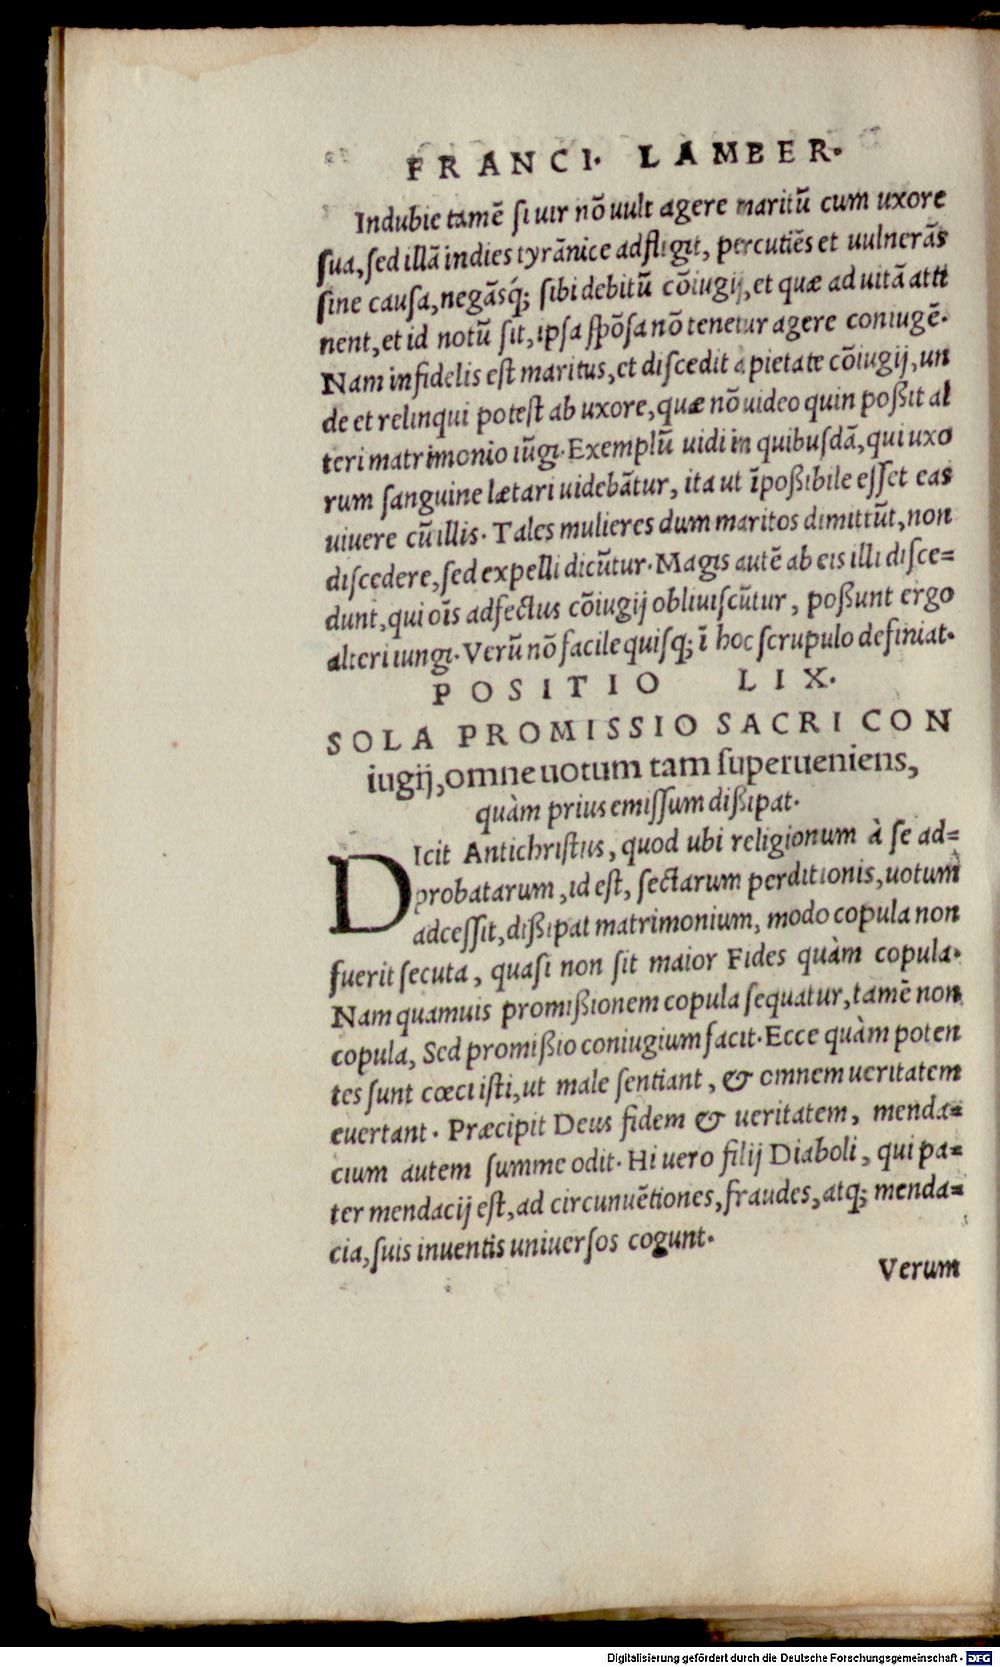 FRANCI. LAMBER.
Indubie tamē ſi uir nō uult agere maritū cum uxore
ſua, ſed illā indies tyrānice adfligit, percutiēs et uulnerās
ſine cauſa, negāsq́; ſibi debitū cōiugij, et quæ ad uitā atti
nent, et id notū ſit, ipſa ſpōſa nō tenetur agere coniugē.
Nam infidelis eſt maritus, et diſcedit a pietate cōiugij, un
de et relinqui poteſt ab uxore, quæ nō uideo quin poßit al
teri matrimonio iūgi. Exemplū uidi in quibuſdā, qui uxo
rum ſanguine lætari uidebātur, ita ut īpoßibile eſſet eas
uiuere cū illis. Tales mulieres dum maritos dimittūt, non
diſcedere, ſed expelli dicūtur. Magis autē ab eis illi diſce=
dunt, qui oīs adfectus cōiugij obliuiſcūtur, poßunt ergo
alteri iungi. Verū nō facile quiſq; ī hoc ſcrupulo definiat.
POSITIO LIX.
SOLA PROMISSIO SACRI CON
iugij, omne uotum tam ſuperueniens,
quàm prius emiſſum dißipat.
DIcit Antichriſtus, quod ubi religionum à ſe ad=
probatarum, id eſt, ſectarum perditionis, uotum
adceſſit, dißipat matrimonium, modo copula non
fuerit ſecuta, quaſi non ſit maior Fides quàm copula.
Nam quamuis promißionem copula ſequatur, tamē non
copula, Sed promißio coniugium facit. Ecce quàm poten
tes ſunt cœci iſti, ut male ſentiant, & omnem ueritatem
euertant. Præcipit Deus fidem & ueritatem, menda=
cium autem ſumme odit. Hi uero filij Diaboli, qui pa=
ter mendacij eſt, ad circunuētiones, fraudes, atq; menda=
cia, ſuis inuentis uniuerſos cogunt.
Verum
Digitalisierung gefördert durch die Deutsche Forschungsgemeinschaft - DFG